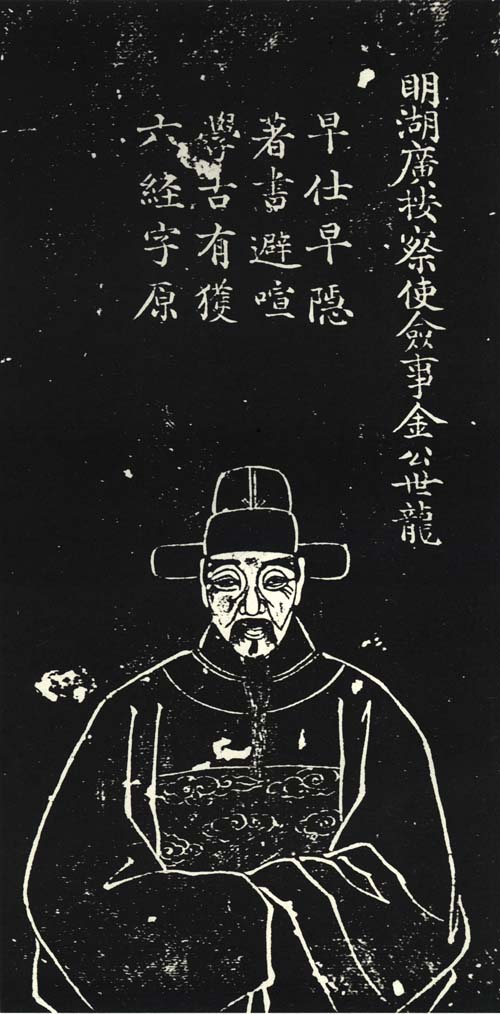 明湖廣按察使僉事金公世龍
早仕早隱
著書避喧
學古有獲
六経字原